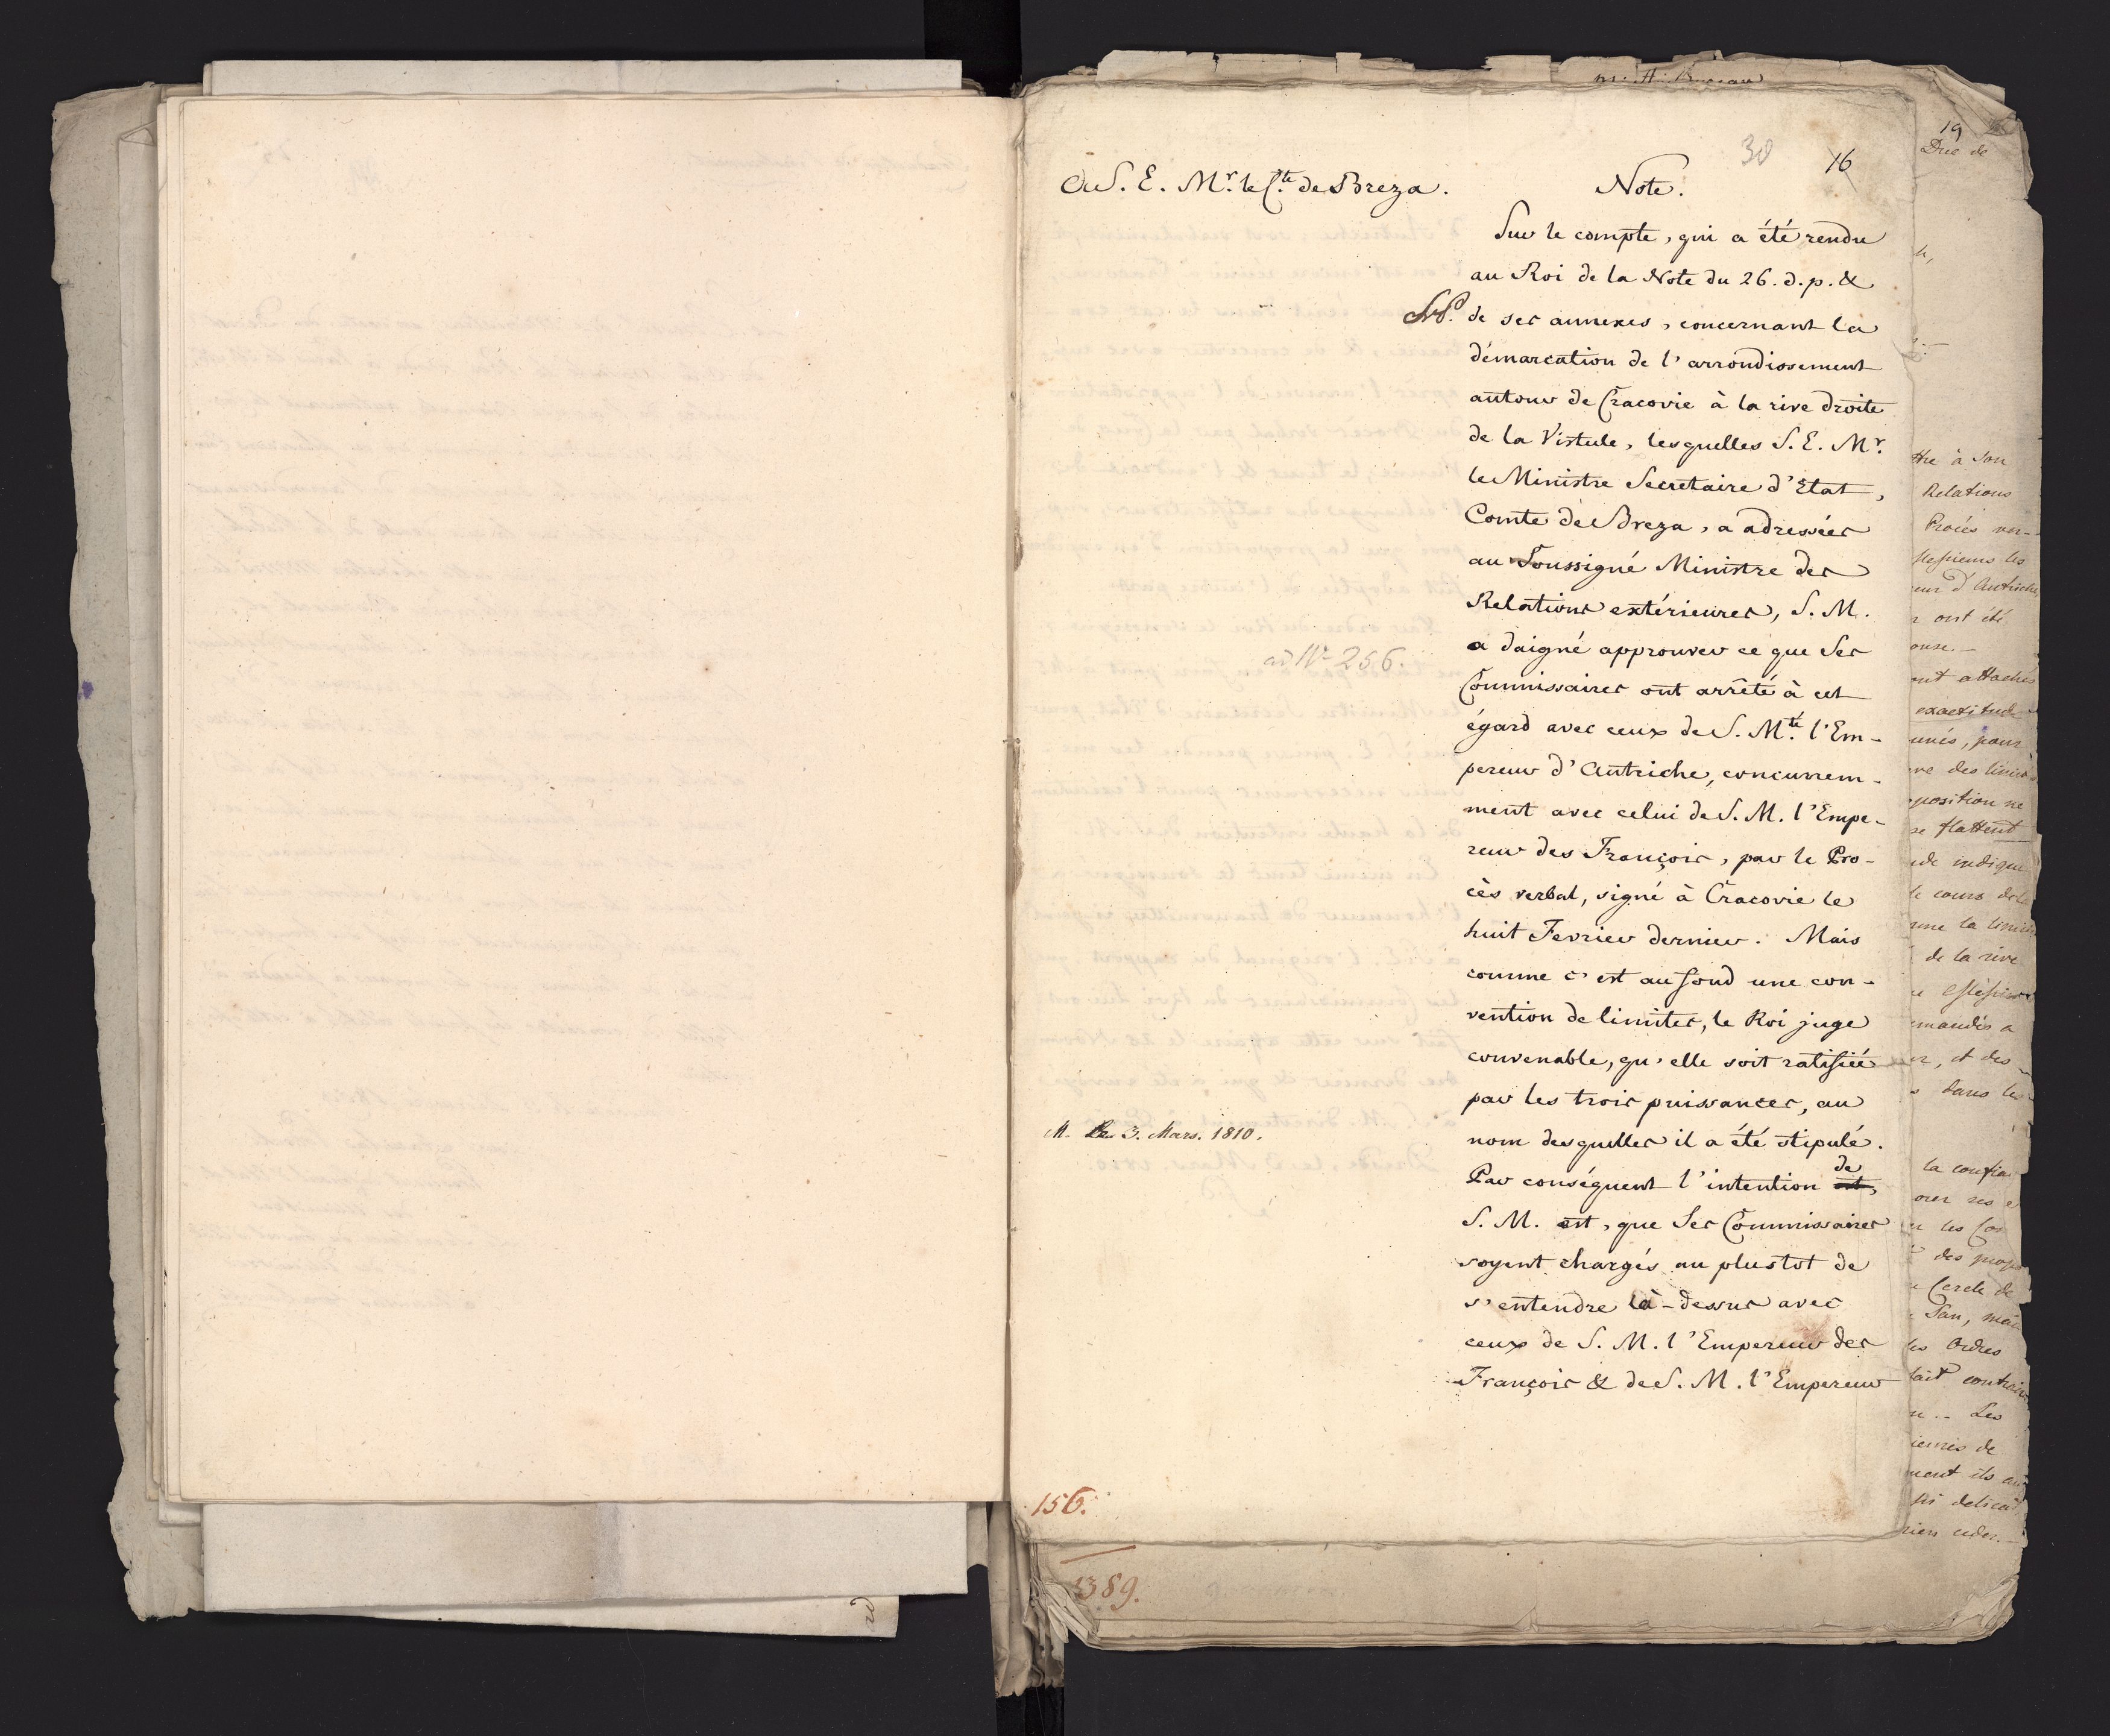 30 16
A S. E. Mr. le Cte. de Breza.
Note.
Sur le compte, qui a été rendu
au Roi de la Note du 26. d. p. &
de ses annexes, concernant la
démarcation de l'arrondissement
autour de Cracovie à la rive droite
de la Vistule, lesquelles S. E. Mr.
le Ministre Secretaire d'Etat,
Comte de Breza, a adressées
au Soussigné Ministre des
Relations extérieures, S. M.
a daigné approuver ce que Ses
Commissaires ont arrêté à cet
égard avec ceux de S. Mté. l'Em-
pereur d'Autriche, concurrem-
ment avec celui de S. M. l'Empe-
reur des François, par le Pro-
cès verbal, signé à Cracovie le
huit Fevrier dernier. Mais
comme c'est au fond une con-
vention de limites, le Roi juge
convenable, qu'elle soit ratifiée
par les trois puissances, au
nom desquelles il a été stipulé.
Par conséquent l'intention de
S. M. est, que Ses Commissaires
soyent chargés au plustot de
s'entendre là-dessus avec
ceux de S. M. l'Empereur des
François & de S. M. l'Empereur
ad No 256.
M. Le 3. Mars. 1810.
156.
389.
19
Duc de
tre à Son
Relations
Procès ver-
eur d'Autriche,
ont été
ont attachés
exactitude
unis, pour
position ne
se flattent
de indique
le cours de la
de la rive
, et des
dans les
la confia
des prop
Cercle de
San, mais
les Ordres
fait contrain
Les
de
ment ils
delicat
rien ceder.